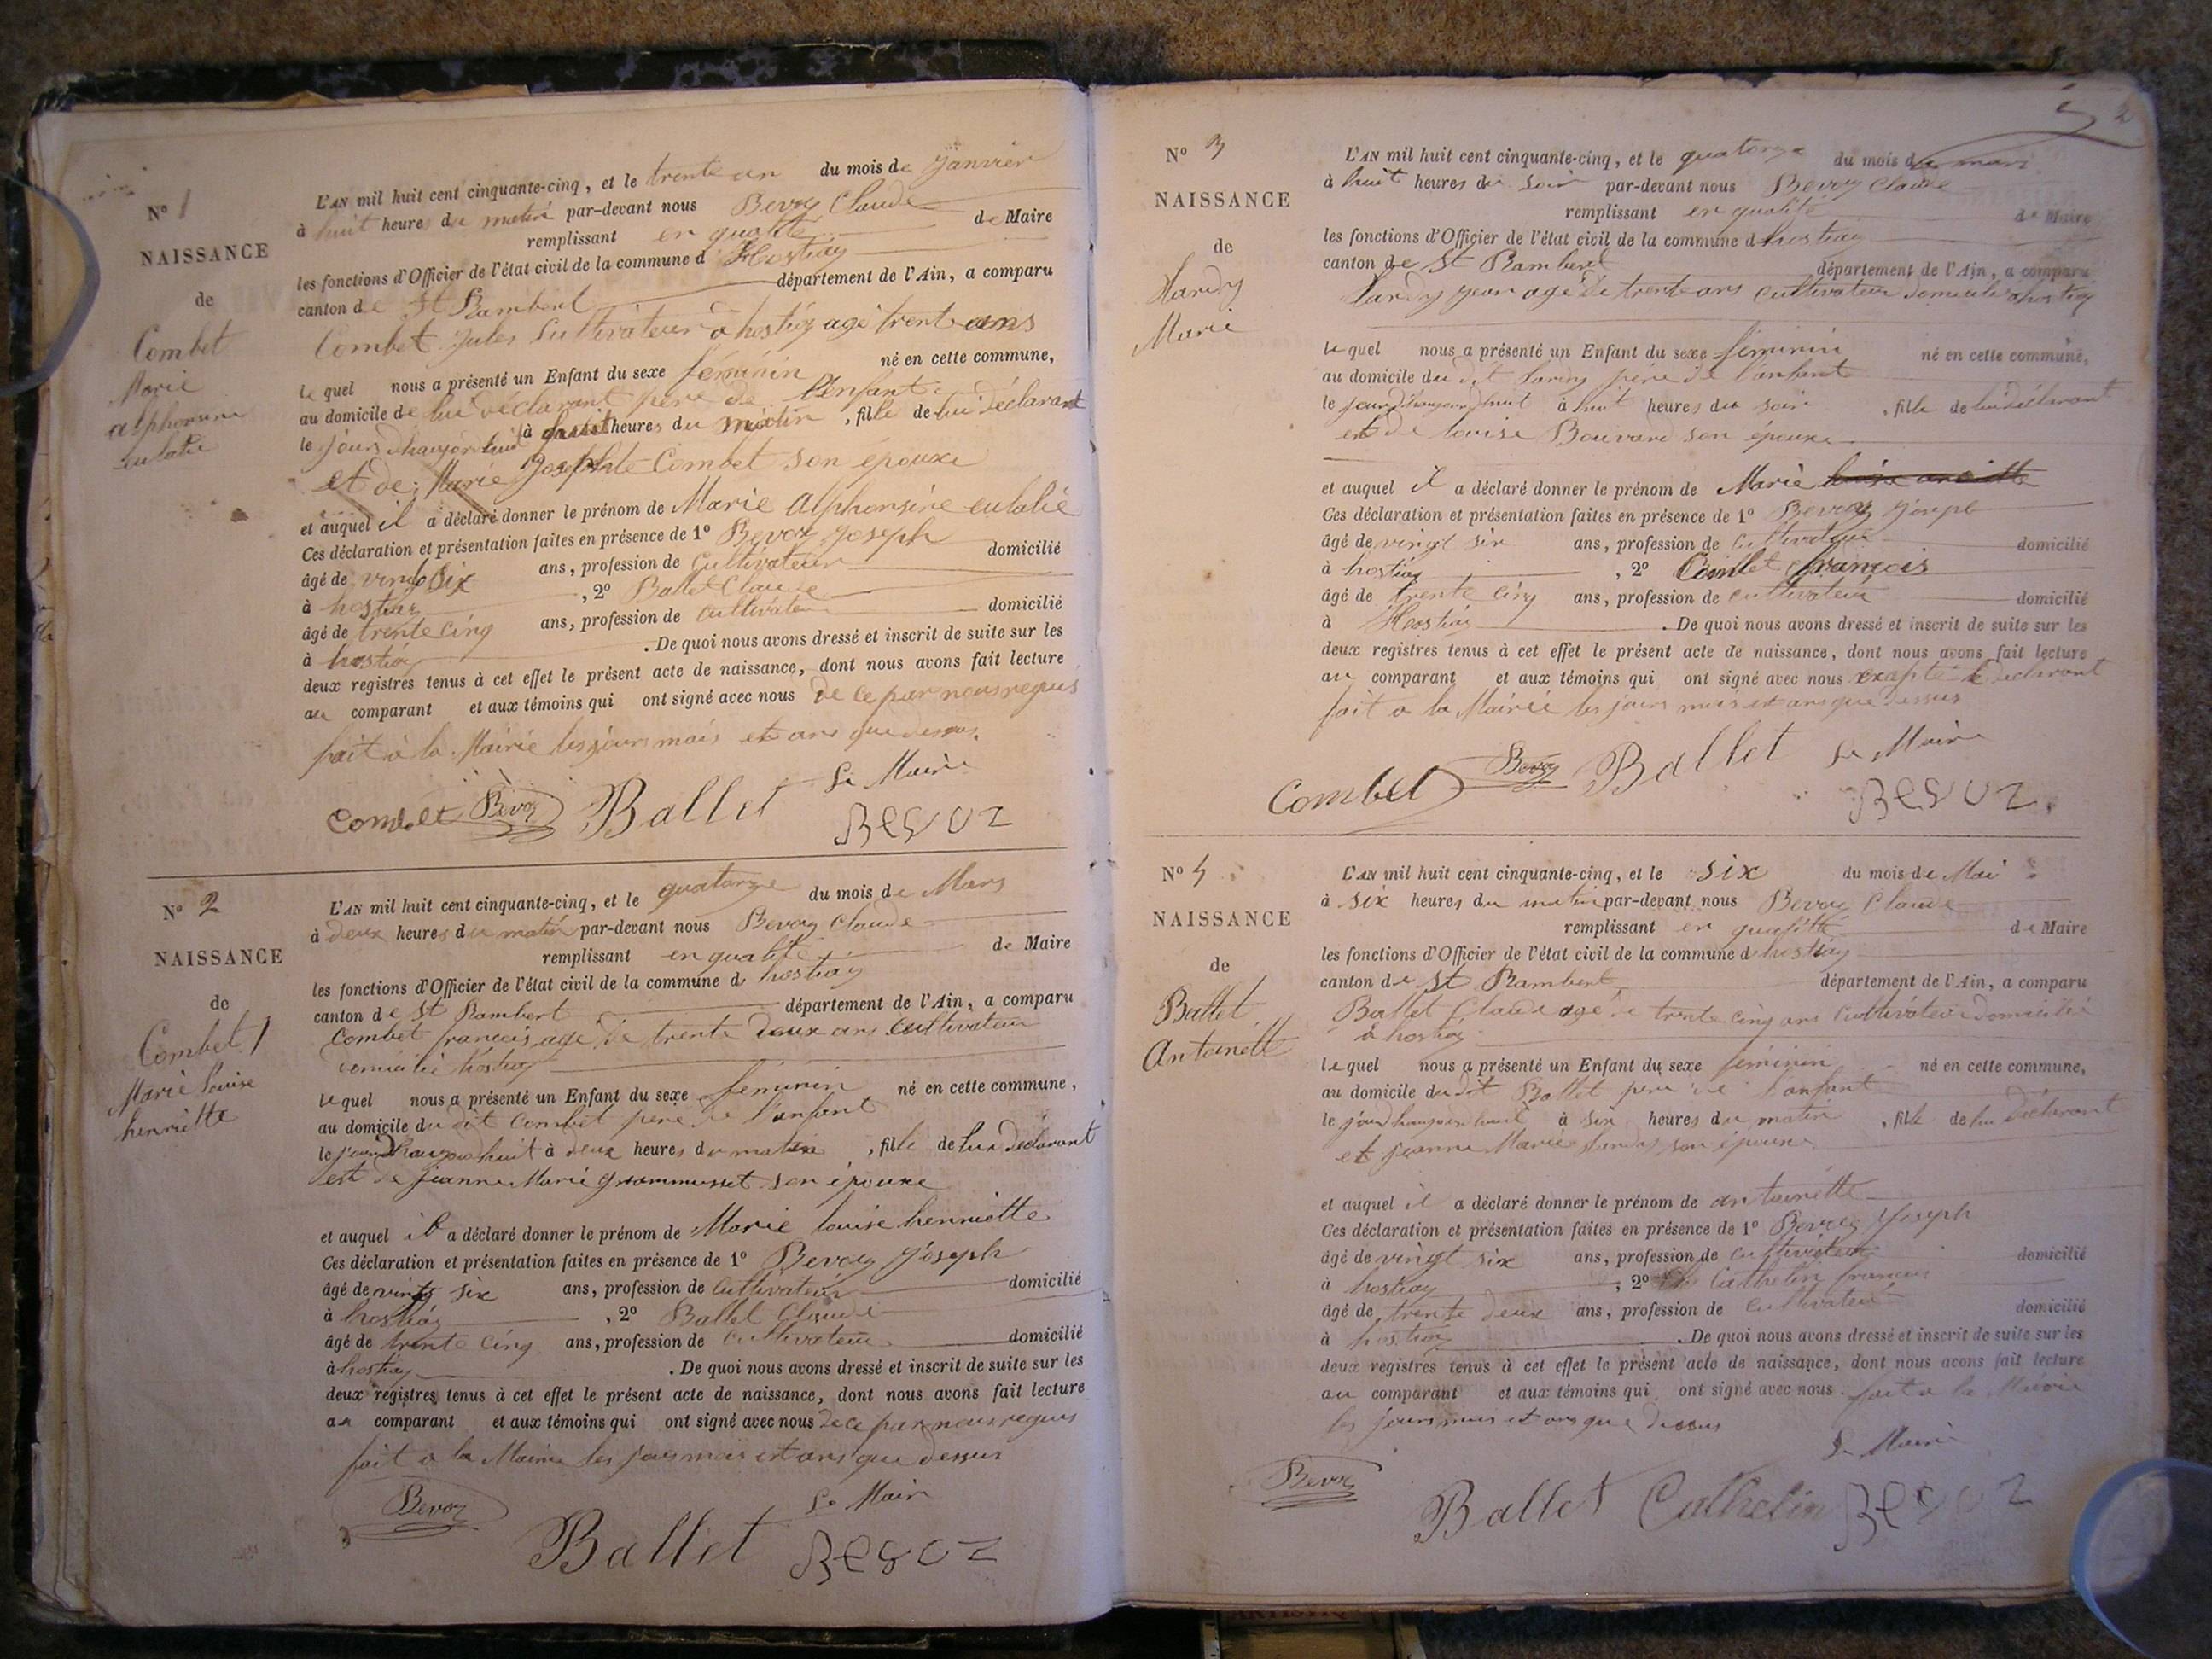 N° 1
NAISSANCE
de
Combet
Marie
alphonsine
eulalie
L'AN mil huit cent cinquante-cinq, et le trente un du mois de janvier
à huit heures du matin par-devant nous Bevoz Claude
remplissant en qualité de Maire
les fonctions d'Officier de l'état civil de la commune d Hostiaz
canton de St Rambert département de l'Ain, a comparu
Combet jules Cultivateur a hostiaz agé trente ans
lequel nous a présenté un Enfant du sexe féminin né en cette commune,
au domicile de lui déclarant père de l'enfant
le jour dhaujourdhuit à huit heures du matin, fille de lui déclarant
et de Marie josephte Combet son épouxe
et auquel il a déclaré donner le prénom de Marie alphonsine eulalie
Ces déclaration et présentation faites en présence de 1° Bevoz joseph
âgé de vingt six ans, profession de Cultivateur domicilié
à hostiaz, 2° Ballet Claude
âgé de trente cinq ans, profession de cultivateur domicilié
à hostiaz. De quoi nous avons dressé et inscrit de suite sur les
deux registres tenus à cet effet le présent acte de naissance, dont nous avons fait lecture
au comparant et aux témoins qui ont signé avec nous de ce par nous requis
fait à la Mairie les jours mois et ans que dessus.
Le Maire
Combet Bevoz Ballet Bevoz
N° 2
NAISSANCE
de
Combet
Marie louise
henriette
L'AN mil huit cent cinquante-cinq, et le quatorze du mois de Mars
à deux heures du matin par-devant nous Bevoz Claude
remplissant en qualité de Maire
les fonctions d'Officier de l'état civil de la commune d hostiaz
canton de St Rambert département de l'Ain, a comparu
Combet francois agé de trente deux ans Cultivateur
domicilié hostiaz
lequel nous a présenté un Enfant du sexe féminin né en cette commune,
au domicile du dit Combet pere de l'enfant
le jour dhaujourdhuit à deux heures du matin, fille de lui déclarant
et de jeanne Marie grammusset son épouxe
et auquel il a déclaré donner le prénom de Marie louise henriette
Ces déclaration et présentation faites en présence de 1° Bevoz joseph
âgé de vingt six ans, profession de Cultivateur domicilié
à hostiaz, 2° Ballet Claude
âgé de trente cinq ans, profession de Cultivateur domicilié
à hostiaz. De quoi nous avons dressé et inscrit de suite sur les
deux registres tenus à cet effet le présent acte de naissance, dont nous avons fait lecture
au comparant et aux témoins qui ont signé avec nous de ce par nous requis
fait a la Mairie les jours mois et ans que dessus
Le Maire
Bevoz Ballet Bevoz
2
N° 3
NAISSANCE
de
Hardy
Marie
L'AN mil huit cent cinquante-cinq, et le quatorze du mois de mars
à huit heures du soir par-devant nous Bevoz Claude
remplissant en qualité de Maire
les fonctions d'Officier de l'état civil de la commune d hostiaz
canton de St Rambert département de l'Ain, a comparu
hardy jean agé de trente ans cultivateur domicilié a hostiaz
lequel nous a présenté un Enfant du sexe féminin né en cette commune,
au domicile du dit hardy père de l'enfent
le jour dhaujourdhuit à huit heures du soir, fille de lui déclarant
et de louise Bouvard son épouxe
et auquel il a déclaré donner le prénom de Marie
Ces déclaration et présentation faites en présence de 1° Bevoz joseph
âgé de vingt six ans, profession de Cultivateur domicilié
à hostiaz, 2° Combet francois
âgé de trente cinq ans, profession de cultivateur domicilié
à Hostiaz. De quoi nous avons dressé et inscrit de suite sur les
deux registres tenus à cet effet le présent acte de naissance, dont nous avons fait lecture
au comparant et aux témoins qui ont signé avec nous exapté le declarant
fait a la Mairie les jours mois et ans que dessus
Le Maire
Combet Bevoz Ballet Bevoz
N° 4
NAISSANCE
de
Ballet
Antoinette
L'AN mil huit cent cinquante-cinq, et le six du mois de Mai
à six heures du matin par-devant nous Bevoz Claude
remplissant en qualité de Maire
les fonctions d'Officier de l'état civil de la commune d hostiaz
canton de St Rambert département de l'Ain, a comparu
Ballet Claude agé de trente cinq ans Cultivateur domicilié
a hostiaz
lequel nous a présenté un Enfant du sexe féminin né en cette commune,
au domicile du dit Ballet pere de l'enfant
le jour dhaujourdhuit à six heures du matin, fille de lui déclarant
et jeanne Marie hardy son épouxe
et auquel il a déclaré donner le prénom de antoinette
Ces déclaration et présentation faites en présence de 1° Bevoz joseph
âgé de vingt six ans, profession de cultivateur domicilié
à hostiaz, 2° Cathelin francois
âgé de trente deux ans, profession de Cultivateur domicilié
à hostiaz. De quoi nous avons dressé et inscrit de suite sur les
deux registres tenus à cet effet le présent acte de naissance, dont nous avons fait lecture
au comparant et aux témoins qui ont signé avec nous fait a la Mairie
les jours mois et ans que dessus
Le Maire
Bevoz Ballet Cathelin Bevoz